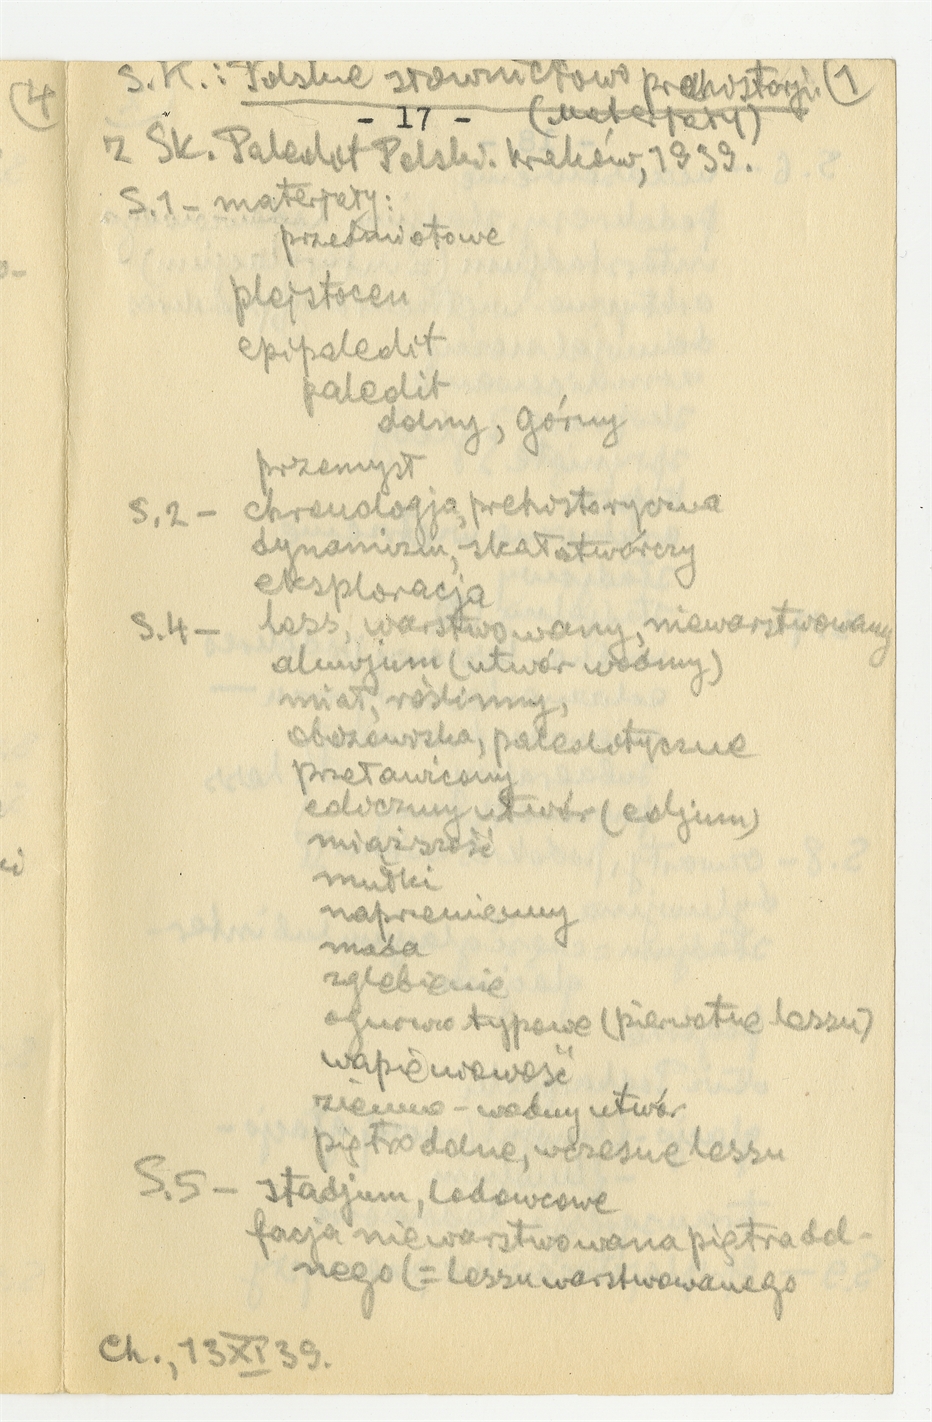 (4
S.K.: Polskie słownictwo prehistorji (1
- 17 - (materjały)
z Sk. Paleolit Polski. Kraków, 1939.
S.1 - materjały:
przedmiotowe
plejstocen
epipaleolit
paleolit
dolny, górny
przemysł
S.2 - chronologja, prehistoryczna
dynamizm, skałotwórczy
eksploracja
S.4 - less, warstwowany, niewarstwowany
aluwjum (utwór wodny)
miał, roślinny,
obozowiska, paleolityczne
przeławicony
eoliczny utwór (eoljum)
miąższość
mułki
naprzemienny
mada
zglebienie
ogniwo typowe (pierwotne lessu)
wapienność
ziemno-wodny utwór
piętro dolne, wczesne lessu
S.5 - stadjum, lodowcowe
facja niewarstwowana piętra dol-
nego (= lessu warstwowanego
Ch., 13 XI 39.